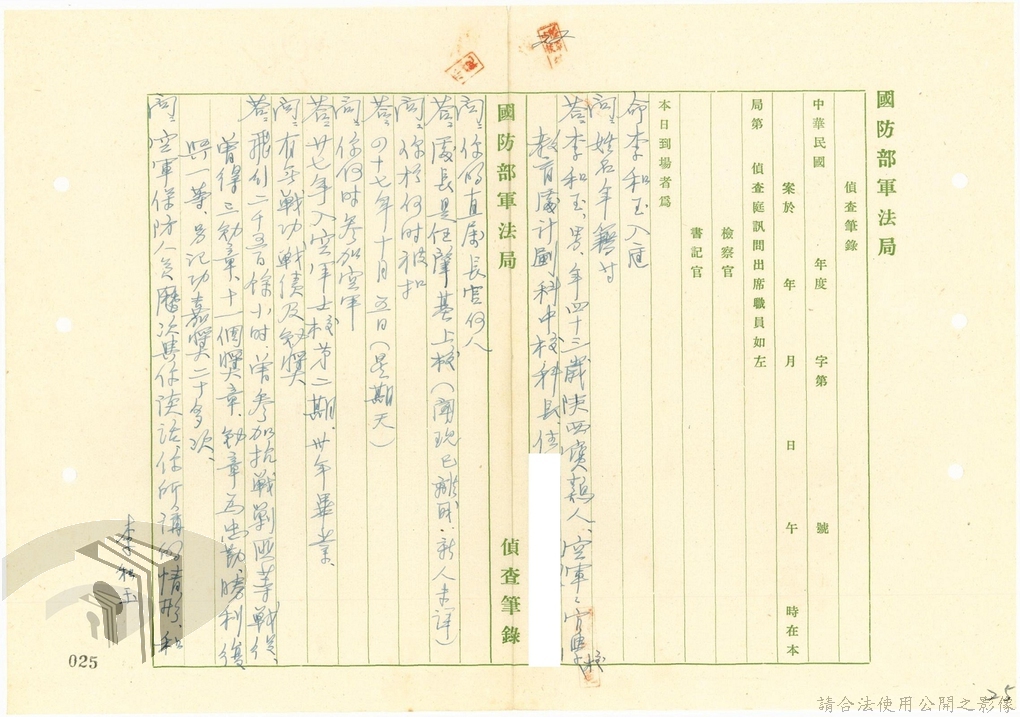 國防部軍法局
偵查筆錄
中華民國 年度 字第 號
案於 年 月 日 午 時在本
局第 偵查庭訊問出席職員如左
檢察官
書記官
本日到場者為
命李和玉入庭
問：姓名年籍等
答：李和玉、男、年四十三歲陝西寶雞人、空軍官學校
教育處計劃科中校科長、住
國防部軍法局 偵查筆錄
問：你的直屬長官何人
答：處長是任肇基上校（聞現已離職．新人未詳）
問：你於何時被扣
答：四十七年十月五日（星期天）
問：你何時參加空軍
答：廿七年入空軍士校第二期．卅年畢業．
問：有無戰功戰績及勛獎
答：飛行二千五百餘小時曾參加抗戰剿匪等戰役．
曾得三勛章、十一個獎章．勛章為忠勤、勝利復
興一等、另記功嘉獎二十多次．
問：空軍保防人員歷次與你談話你所講的情形、和
李和玉
025
25
請合法使用公開之影像